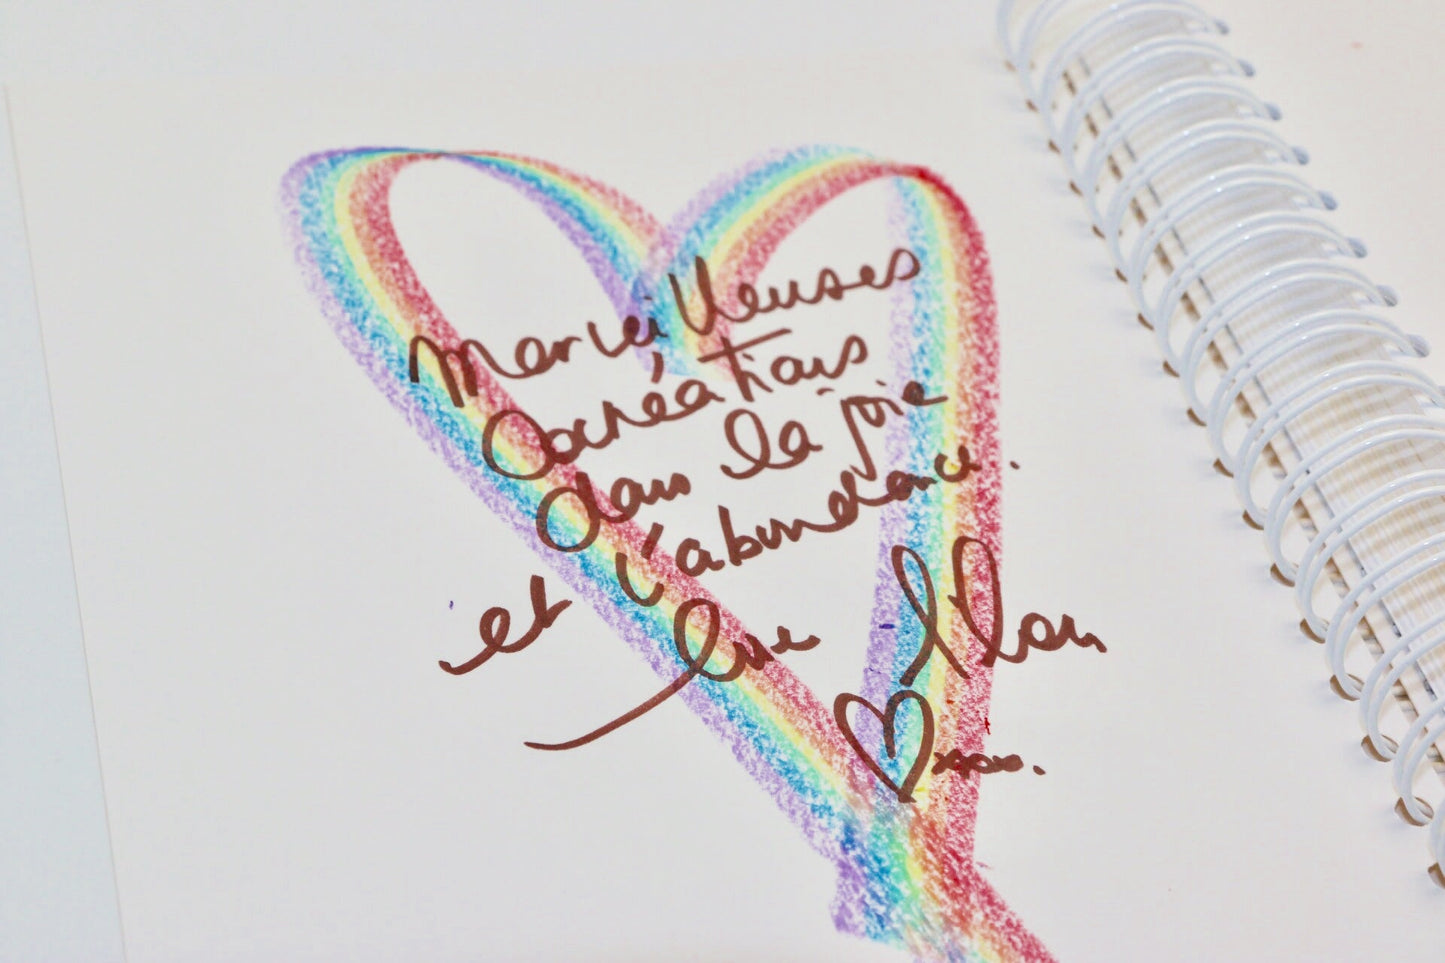 Merveilleuses
Cocréations
dans la joie
et l'abondance.
love
xxxx.